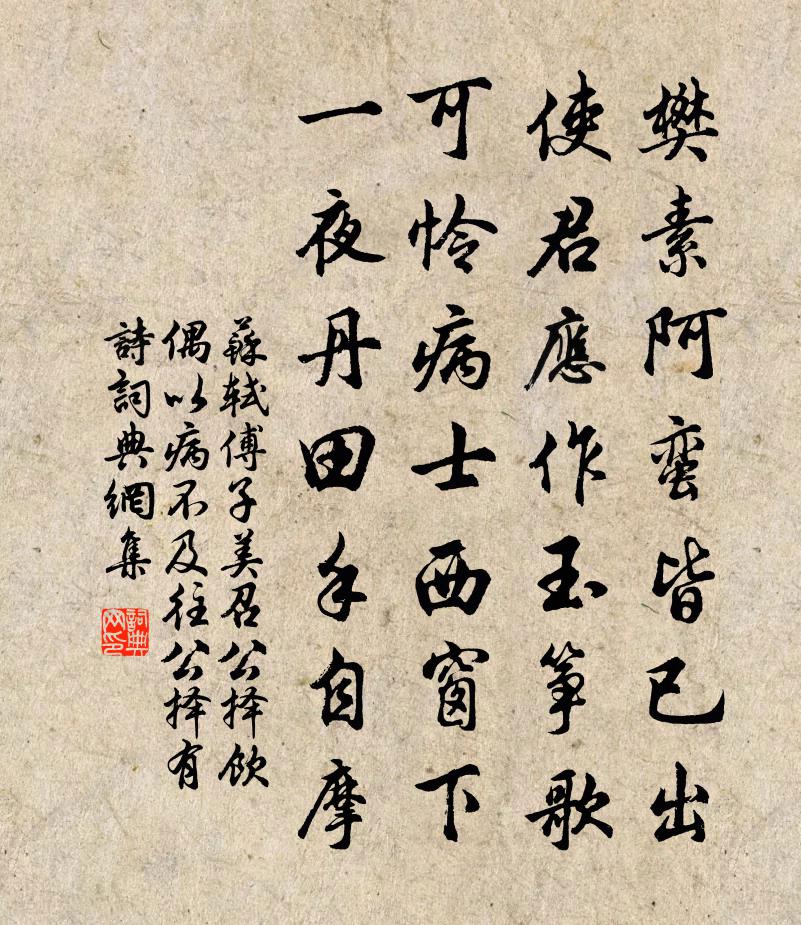 樊素阿蛮皆已出
使君應作玉筝歌
可怜病士西窗下
一夜丹田手自摩
蘇軾傅子美召公择飲
偶以病不及往公择有
詩詞典網集
詞典
网印